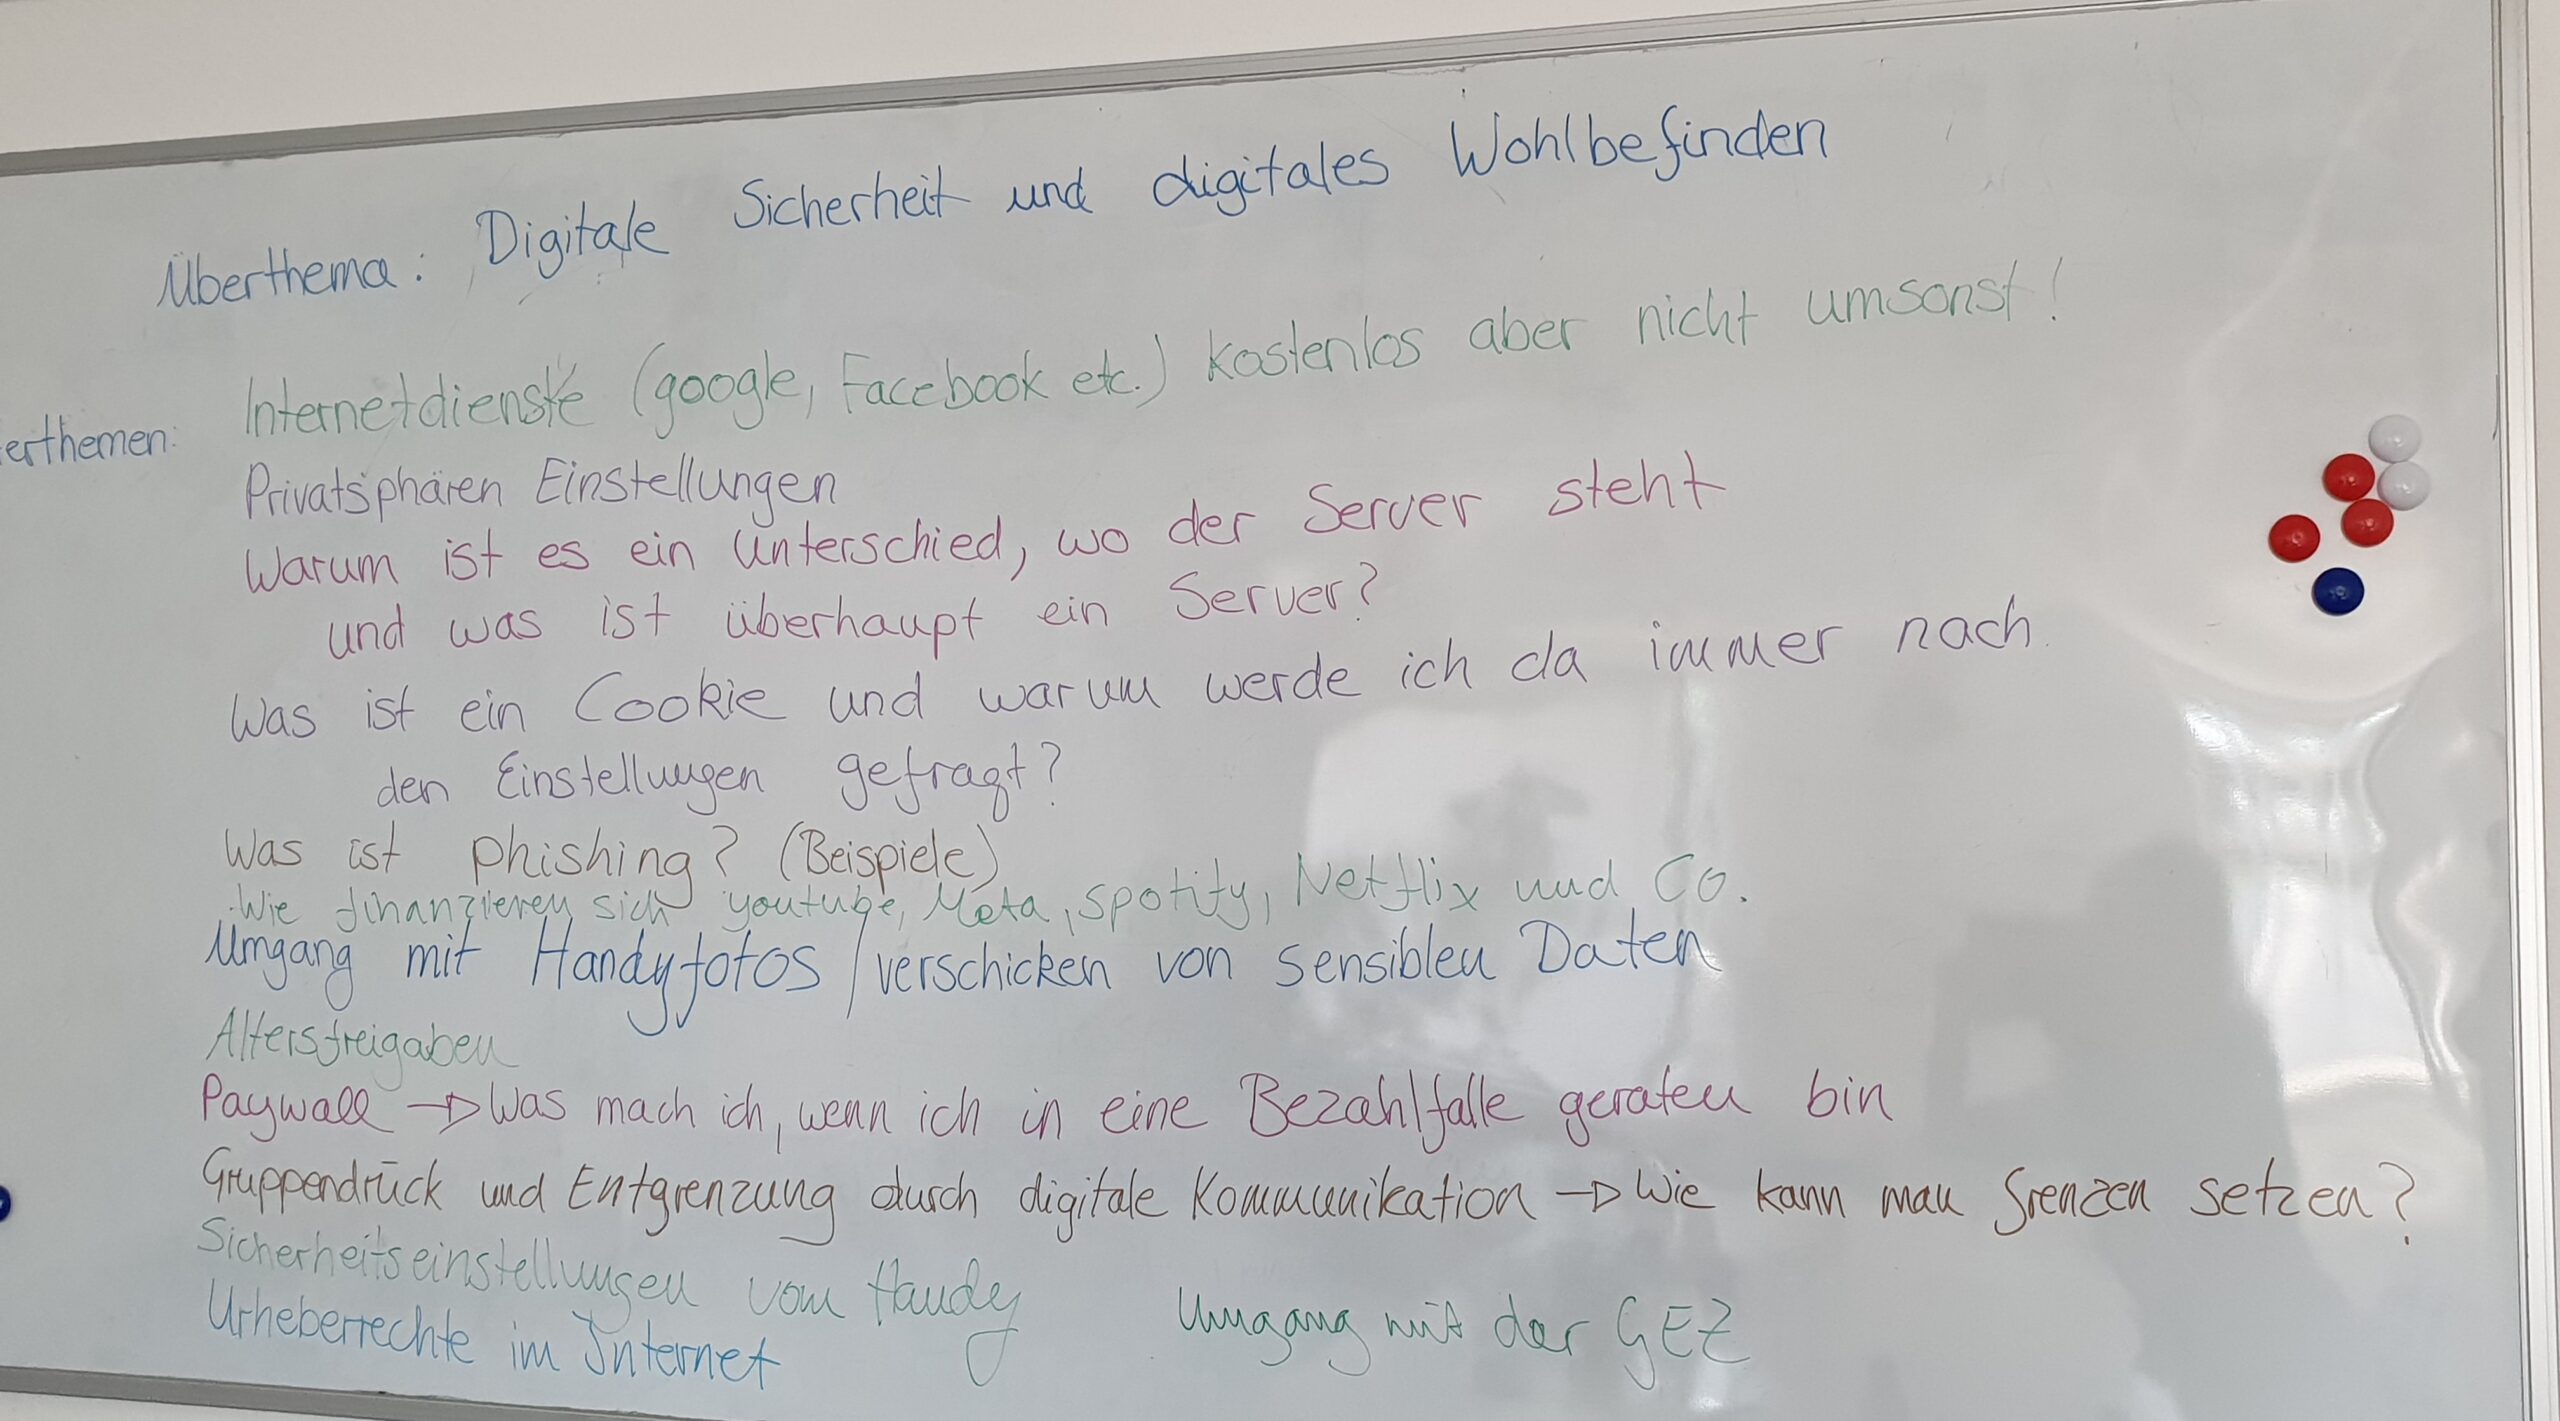 Überthema: Digitale Sicherheit und digitales Wohlbefinden
Internetdienste (google, Facebook etc.) kostenlos aber nicht umsonst!
erthemen:
Privatsphären Einstellungen
Warum ist es ein Unterschied, wo der Server steht
und was ist überhaupt ein Server?
Was ist ein Cookie und warum werde ich da immer nach
den Einstellungen gefragt?
Was ist phishing? (Beispiele)
Wie finanzieren sich youtube, Meta, spotify, Netflix und Co.
Umgang mit Handyfotos / verschicken von sensiblen Daten
Altersfreigaben
Paywall → Was mach ich, wenn ich in eine Bezahlfalle geraten bin
Gruppendruck und Entgrenzung durch digitale Kommunikation → Wie kann man Grenzen setzen?
Sicherheitseinstellungen vom Handy
Umgang mit der GEZ
Urheberrechte im Internet